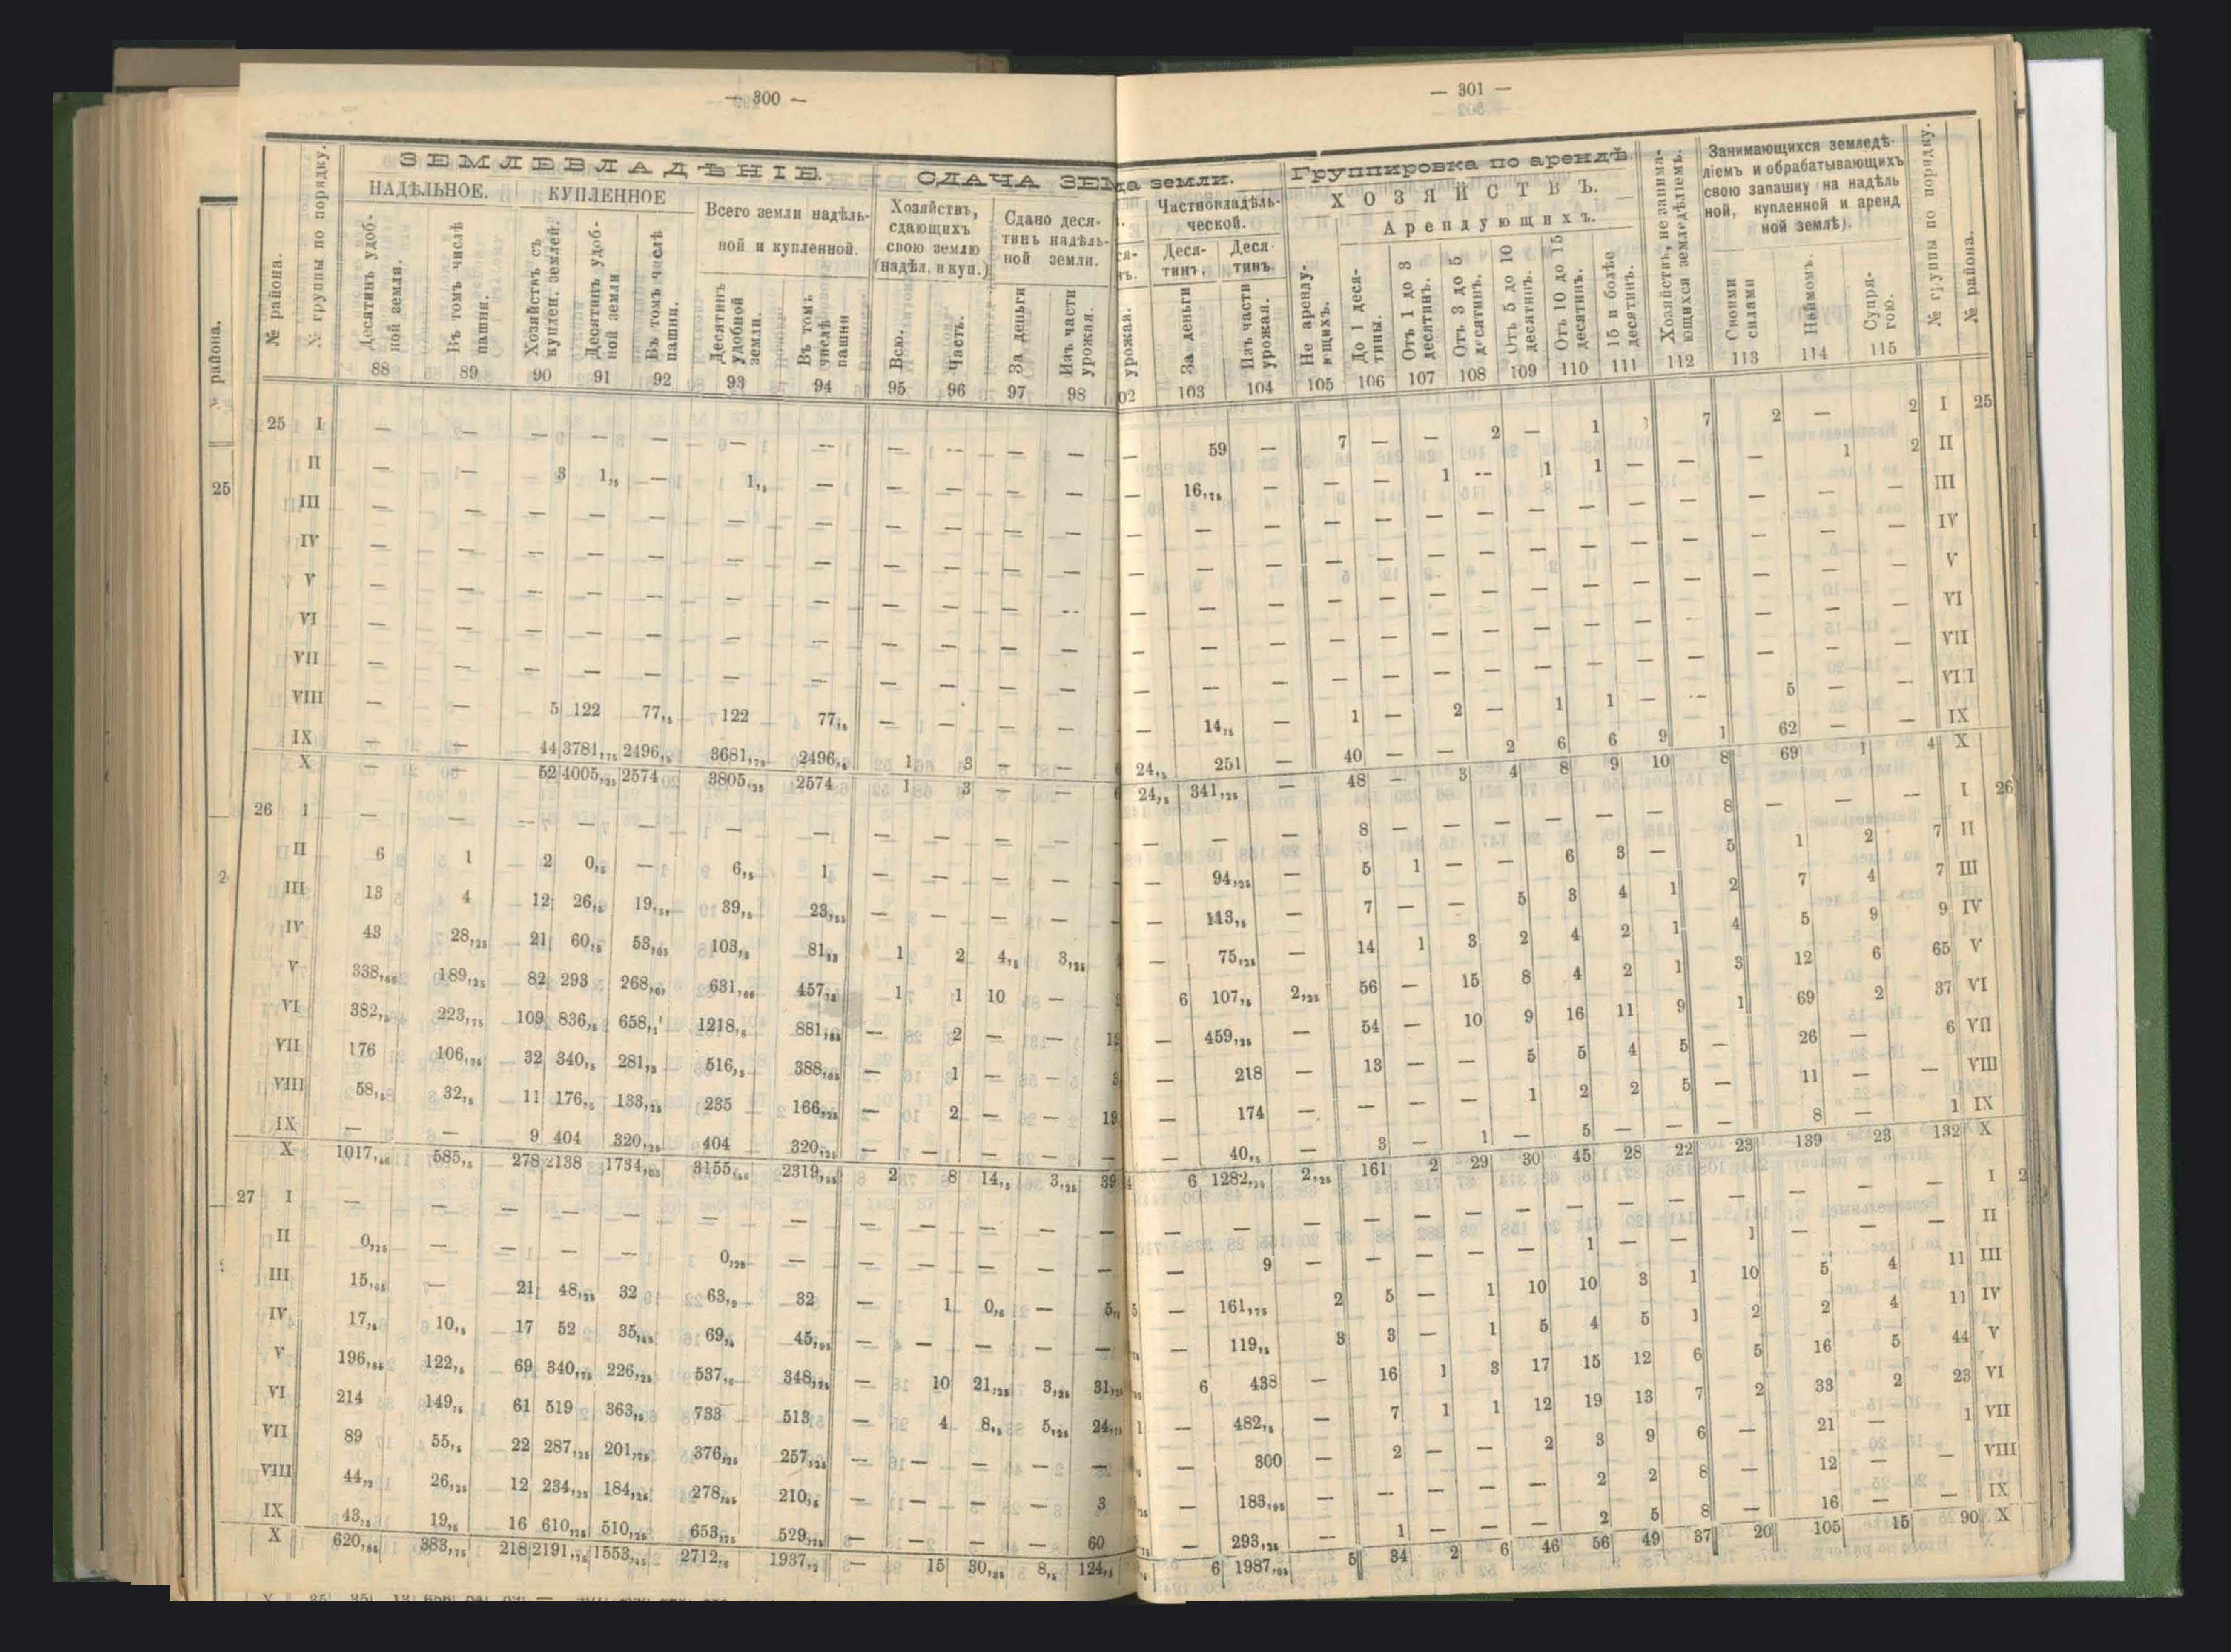 — 300 —
ЗЕМЛЕВЛАДѢНІЕ.
СДАЧА ЗЕМ
НАДѢЛЬНОЕ.
КУПЛЕННОЕ
Всего земли надѣль-
ной и купленной.
Хозяйствъ,
сдающихъ
свою землю
(надѣл. и куп.)
Сдано деся-
тинъ надѣль-
ной земли.
№ района.
№ группы по порядку.
Десятинъ удоб-
ной земли.
Въ томъ числѣ
пашни.
Хозяйствъ съ
куплен. землей.
Десятинъ удоб-
ной земли
Въ томъ числѣ
пашни.
Десятинъ
удобной
земли.
Въ томъ
числѣ
пашни
Всю.
Часть.
За деньги
Изъ части
урожая.
88 89 90 91 92 93 94 95 96 97 98
25 I — — — — — — — — — — —
II — — 3 1,5 — 1,5 — — — — —
III — — — — — — — — — — —
IV — — — — — — — — — — —
V — — — — — — — — — — —
VI — — — — — — — — — — —
VII — — — — — — — — — — —
VIII — — 5 122 77,5 122 77,5 — — — —
IX — — 44 3781,75 2496,5 3681,75 2496,5 1 3 — —
X — — 52 4005,25 2574 3805,25 2574 1 3 — —
26 I — — — — — — — — — — —
II 6 1 2 0,5 — 6,5 1 — — — —
III 13 4 12 26,5 19,5 39,5 23,55 — — — —
IV 43 28,25 21 60,5 53,05 103,5 81,3 1 2 4,5 3,25
V 338,66 189,25 82 293 268,0 631,66 457,3 1 1 10 —
VI 382, 223,75 109 836,5 658,1 1218,5 881,85 — 2 — —
VII 176 106,75 32 340,5 281,3 516,5 388,05 — 1 — —
VIII 58,5 32,5 11 176,5 133,25 235 166,25 — 2 — — 19
IX — — 9 404 320,25 404 320,25 — — — — —
X 1017,46 585,5 278 2138 1734,05 3155,46 2319,55 2 8 14,5 3,25 39
27 I — — — — — — — — — — — —
II 0,25 — — — — 0,25 — — — — — —
III 15, — 21 48,25 32 63,9 32 — 1 0,5 — 5,
IV 17, 10,5 17 52 35, 69, 45, — — — — —
V 196, 122,5 69 340,75 226,25 537, 348,25 — 10 21,25 3,25 31,
VI 214 149, 61 519 363,5 733 513 — 4 8,5 5,25 24,
VII 89 55,5 22 287,25 201,75 376,25 257,25 — — — — —
VIII 44,2 26,25 12 234,25 184,25 278, 210,5 — — — — 3
IX 43,5 19,5 16 610,25 510,25 653,75 529,75 — — — — 60
X 620, 383,75 218 2191,75 1553, 2712, 1937,2 — 15 30, 8,5 124,
— 301 —
а земли.
Группировка по арендѣ
Частновладѣль-
ческой.
ХОЗЯЙСТВЪ.
Арендующихъ.
Занимающихся земледѣ-
ліемъ и обрабатывающихъ
свою запашку (на надѣль
ной, купленной и аренд
ной землѣ).
Деся-
тинъ.
Деся
тинъ.
урожая.
За деньги
Изъ части
урожая.
Не аренду-
ющихъ.
До 1 деся-
тины.
Отъ 1 до 3
десятинъ.
Отъ 3 до 5
десятинъ.
Отъ 5 до 10
десятинъ.
Отъ 10 до 15
десятинъ.
15 и болѣе
десятинъ.
Хозяйствъ, не занима-
ющихся земледѣліемъ.
Своими
силами
Наймомъ.
Супря-
гою.
№ группы по порядку.
№ района.
02 103 104 105 106 107 108 109 110 111 112 113 114 115
— 59 — 7 — — 2 — 1 1 7 2 — 2 I 25
— 16,75 — — — 1 -- 1 1 — — — 1 2 II
— — — — — — — — — — — — — — III
— — — — — — — — — — — — — — IV
— — — — — — — — — — — — — — V
— — — — — — — — — — — — — — VI
— — — — — — — — — — — — — — VII
— 14,5 — 1 — 2 — 1 1 — — 5 — — VIII
24,5 251 — 40 — — 2 6 6 9 1 62 — — IX
24,5 341,25 — 48 — 3 4 8 9 10 8 69 1 4 X
— — — 8 — — — — — — 8 — — — I 26
— 94,25 — 5 1 — — 6 3 — 5 1 2 7 II
— 113,5 — 7 — — 5 3 4 1 2 7 4 7 III
— 75,25 — 14 1 3 2 4 2 1 4 5 9 9 IV
6 107,5 2,25 56 — 15 8 4 2 1 3 12 6 65 V
— 459,25 — 54 — 10 9 16 11 9 1 69 2 37 VI
— 218 — 13 — — 5 5 4 5 — 26 — 6 VII
— 174 — — — — 1 2 2 5 — 11 — — VIII
— 40,5 — 3 — 1 — 5 — — — 8 — 1 IX
6 1282,25 2,25 161 2 29 30 45 28 22 23 139 23 132 X
— — — — — — — — — — — — — — I 2
— 9 — — — — — 1 — — 1 — — — II
— 161,75 2 5 — 1 10 10 3 1 10 5 4 11 III
— 119,5 3 3 — 1 5 4 5 1 2 2 4 11 IV
6 438 — 16 1 3 17 15 12 6 5 16 5 44 V
— 482,5 — 7 1 1 12 19 13 7 2 33 2 23 VI
— 300 — 2 — — 2 3 9 6 — 21 — 1 VII
— 183, — — — — — 2 2 8 — 12 — — VIII
— 293,25 — 1 — — — 2 5 8 — 16 — — IX
6 1987, 5 34 2 6 46 56 49 37 20 105 15 90 X
района.
25